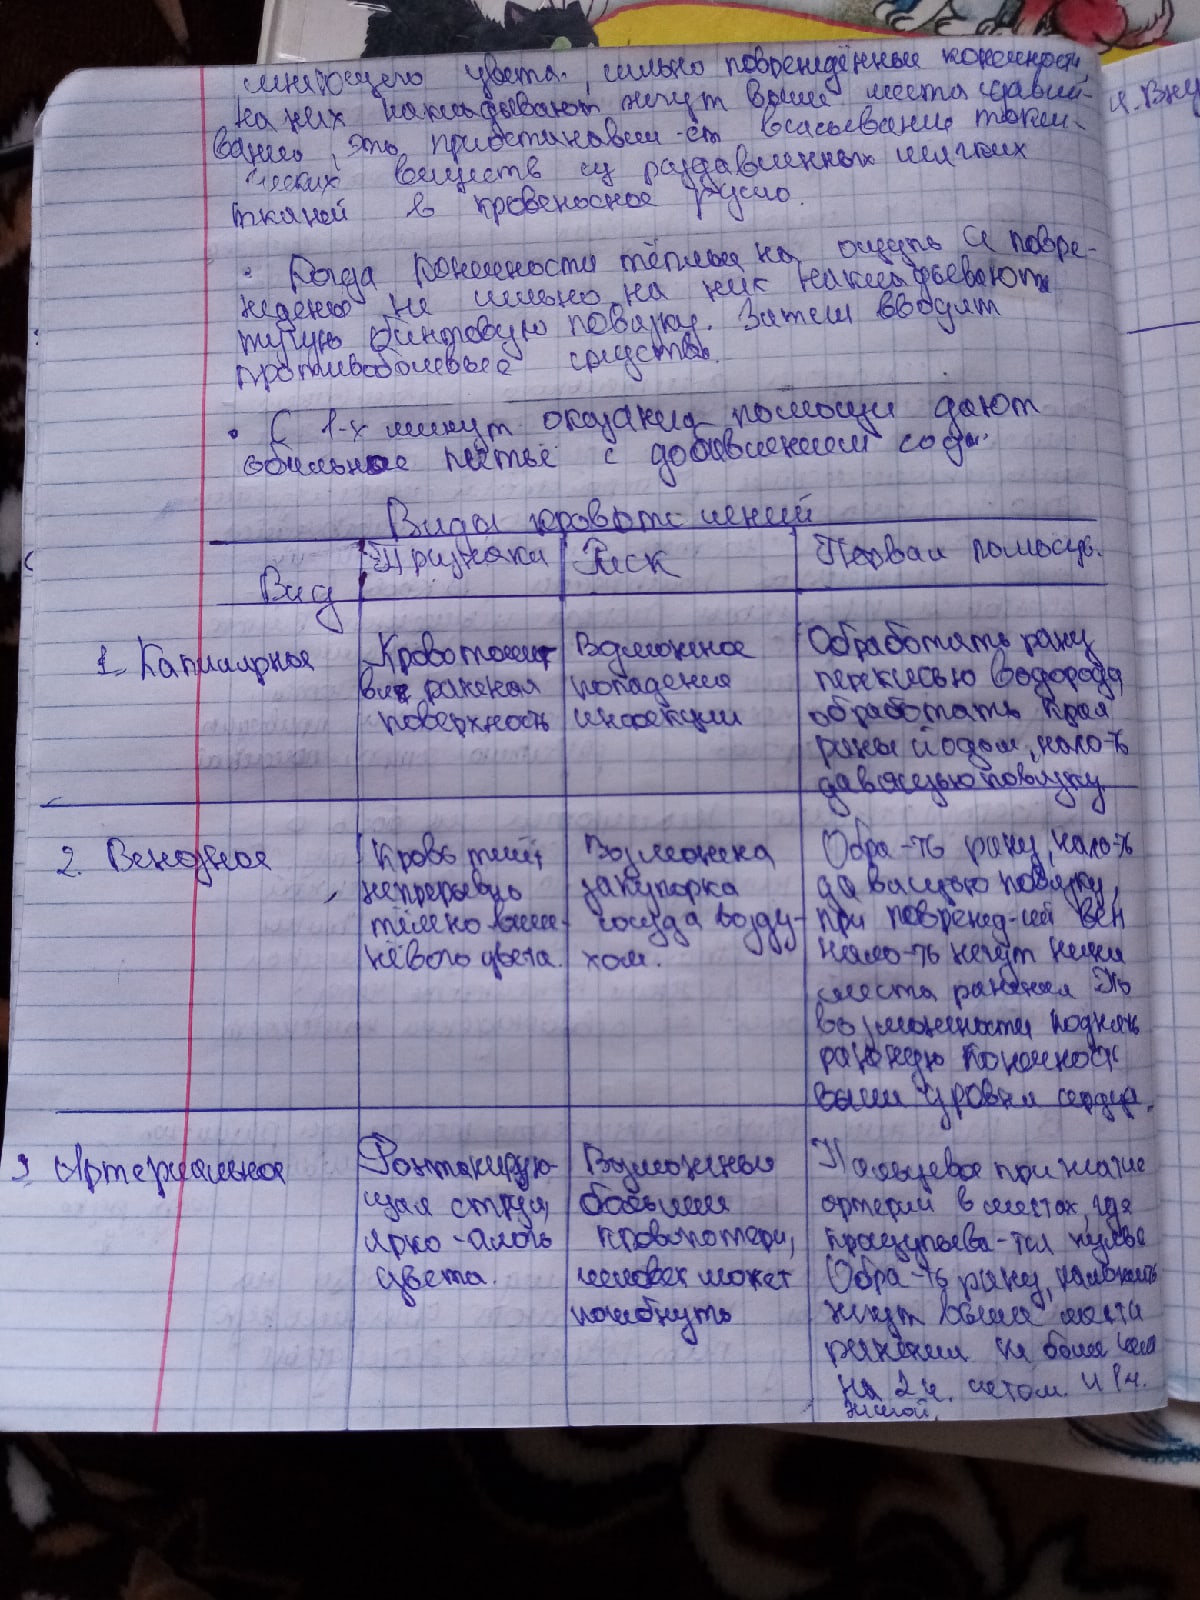 синюшного цвета, сильно повреждённые конечности,
на них накладывают жгут выше места сдавли-
вания, это приостанавли-ет всасывание токси-
ческих веществ из раздавленных мягких
тканей в кровеносное русло.
• Когда конечности тёплые на ощупь и повре-
ждены не сильно, на них накладывают
тугую бинтовую повязку. Затем вводят
противоболевые средства.
• С 1-х минут оказания помощи дают
обильное питьё с добавлением соды.
Виды кровотечений
Вид Признаки Риск Первая помощь.
1. Капиллярное
Кровоточит
вся раненая
поверхность
Возможное
попадение
инфекции
Обработать рану
перекисью водорода
обработать края
раны йодом, нало-ть
давящую повязку
2. Венозное
Кровь течёт
непрерывно
тёмно-вишн-
нёвого цвета.
Возможна
закупорка
сосуда возду-
хом.
Обра-ть рану, нало-ть
давящую повязку,
при поврежд-ией вен
нало-ть жгут ниже
места ранения. По
возможности поднять
раненую конечность
выше уровня сердца.
3 Артериальное
Фонтанирую-
щая струя,
ярко-алого
цвета.
Возможны
большие
кровопотери,
человек может
погибнуть
Пальцевое прижатие
артерии в местах, где
прощупыва-тся пульс
Обра-ть рану, наложить
жгут выше места
ранения не более чем
на 2 ч. летом и 1 ч.
зимой.
4. Вну